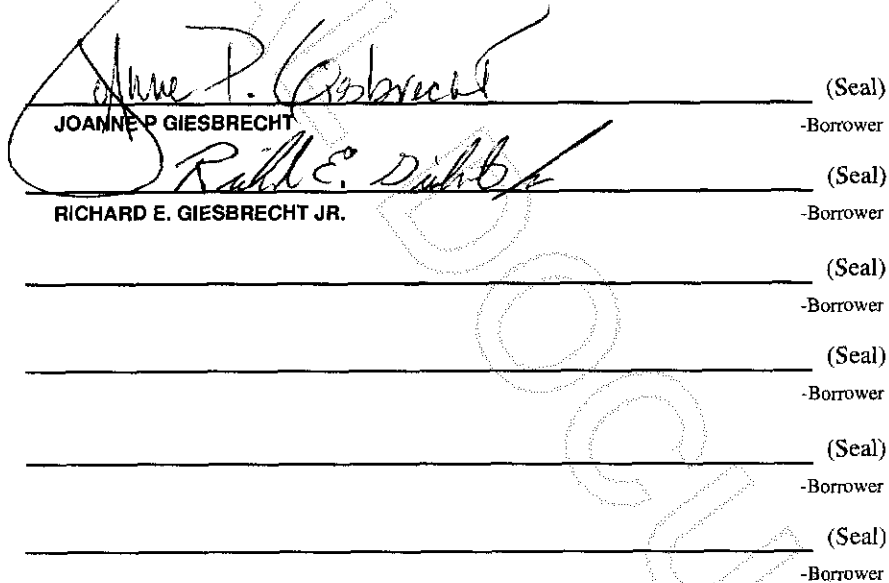 Joanne P. Giesbrecht (Seal)
JOANNE P GIESBRECHT -Borrower
Richard E. (Seal)
RICHARD E. GIESBRECHT JR. -Borrower
(Seal)
-Borrower
(Seal)
-Borrower
(Seal)
-Borrower
(Seal)
-Borrower
DOCU